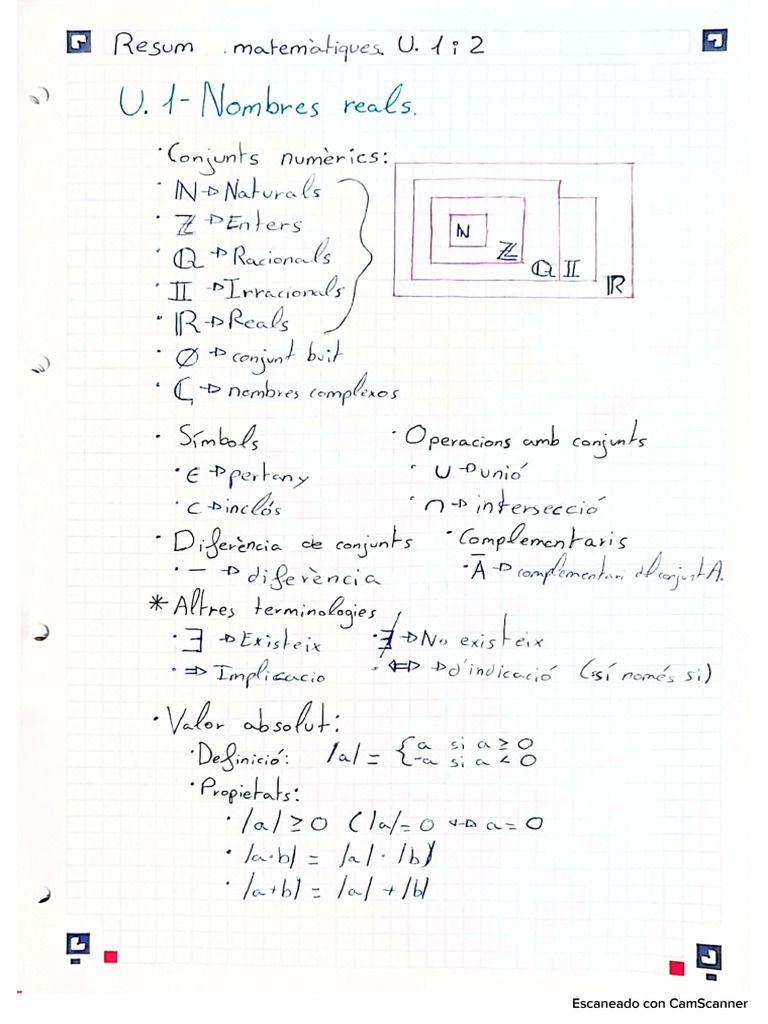 Resum matemàtiques U. 1 i 2
U. 1 - Nombres reals.
· Conjunts numèrics:
· ℕ → Naturals
· ℤ → Enters
· ℚ → Racionals
· 𝕀 → Irracionals
· ℝ → Reals
ℕ ℤ ℚ 𝕀 ℝ
· ∅ → conjunt buit
· ℂ → nombres complexos
· Símbols · Operacions amb conjunts
· ∈ → pertany · ∪ → unió
· ⊂ → inclós · ∩ → intersecció
· Diferència de conjunts · Complementaris
· — → diferència · Ā → complementari del conjunt A.
* Altres terminologies
· ∃ → Existeix · ∄ → No existeix
· ⇒ Implicacio · ⇔ → d'indicació (sí només si)
· Valor absolut:
· Definició: |a| = { a si a ≥ 0
-a si a < 0
· Propietats:
· |a| ≥ 0 (|a| = 0 ⇔ a = 0
· |a·b| = |a| · |b|
· |a+b| = |a| + |b|
Escaneado con CamScanner